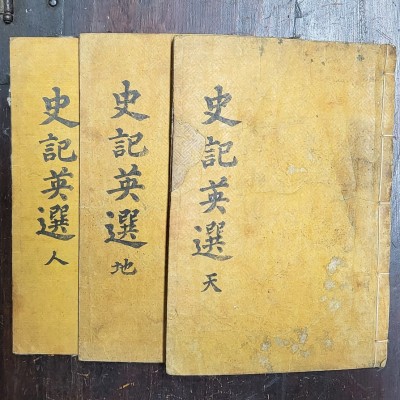 史記英選 天
史記英選 地
史記英選 人